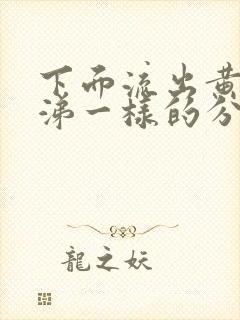 下面流出黄
涕一樣的分
龍之妖